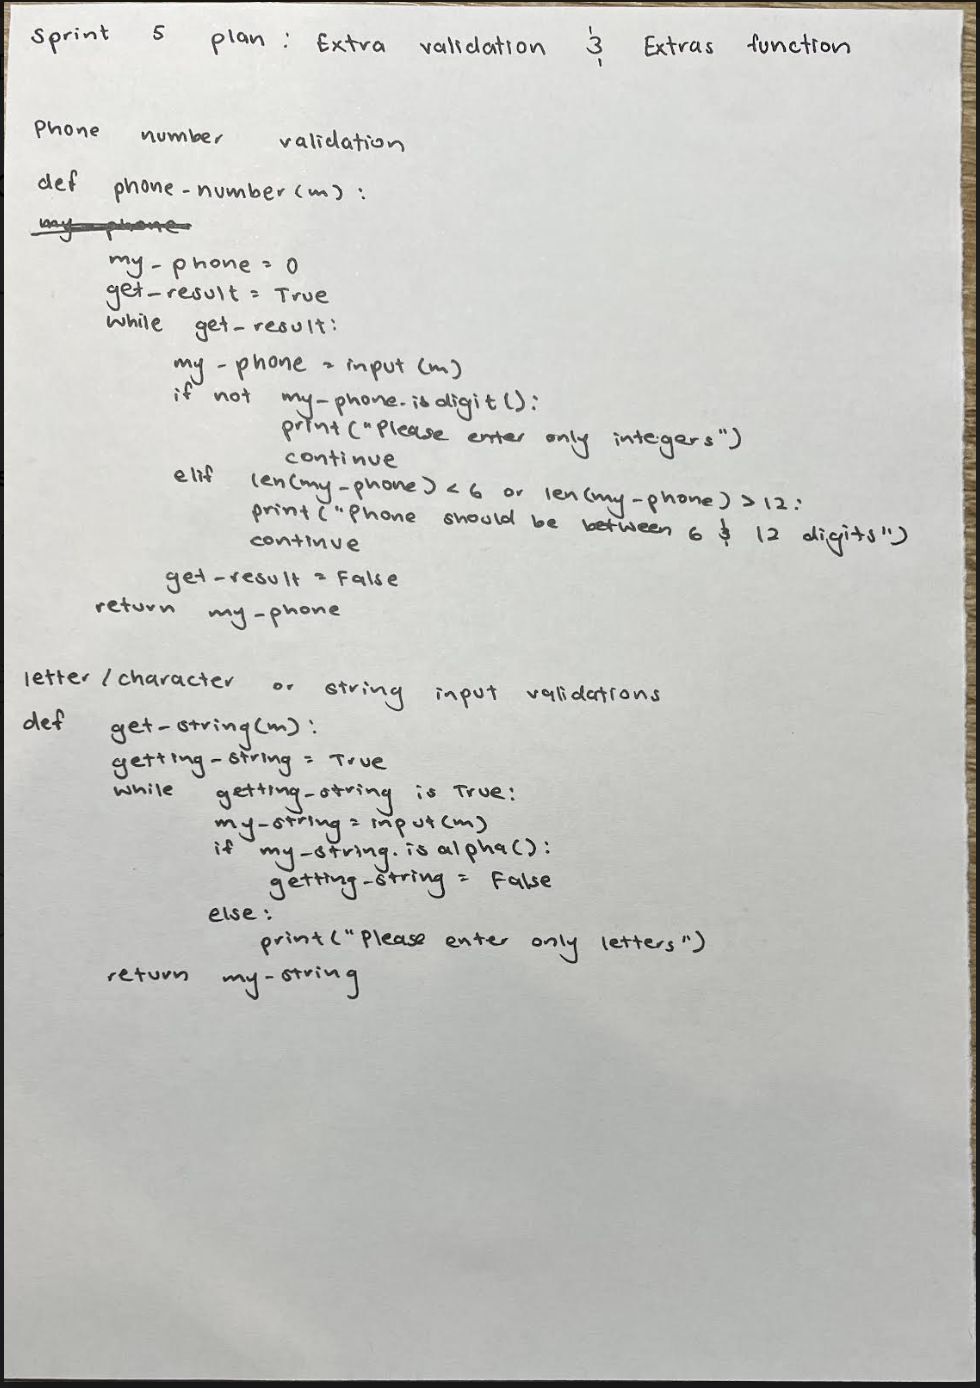 Sprint 5 plan : Extra validation & Extras function
Phone number validation
def phone-number(m):
my-phone
my-phone = 0
get-result = True
while get-result:
my-phone = input(m)
if not my-phone.isdigit():
print("Please enter only integers")
continue
elif len(my-phone) < 6 or len(my-phone) > 12:
print("Phone should be between 6 & 12 digits")
continue
get-result = False
return my-phone
letter / character or string input validations
def get-string(m):
getting-string = True
while getting-string is True:
my-string = input(m)
if my-string.isalpha():
getting-string = False
else:
print("Please enter only letters")
return my-string